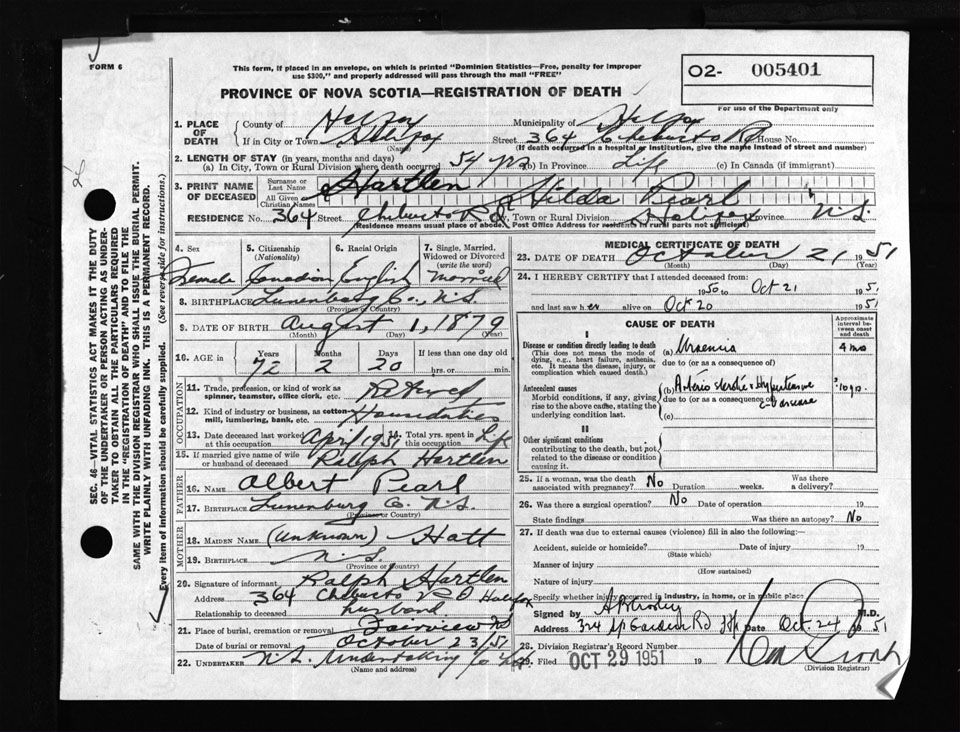 FORM 6
This form, if placed in an envelope, on which is printed "Dominion Statistics—Free, penalty for improper
use $300," and properly addressed will pass through the mail "FREE"
PROVINCE OF NOVA SCOTIA—REGISTRATION OF DEATH
O2- 005401
For use of the Department only
SEC. 46—VITAL STATISTICS ACT MAKES IT THE DUTY
OF THE UNDERTAKER OR PERSON ACTING AS UNDER-
TAKER TO OBTAIN ALL THE PARTICULARS REQUIRED
IN THE "REGISTRATION OF DEATH" AND TO FILE THE
SAME WITH THE DIVISION REGISTRAR WHO SHALL ISSUE THE BURIAL PERMIT.
WRITE PLAINLY WITH UNFADING INK. THIS IS A PERMANENT RECORD.
Every item of information should be carefully supplied. (See reverse side for instructions.)
1. PLACE OF DEATH
County of Municipality of
If in City or Town Halifax Street 364 Chebucto Rd House No.
(Name) (If death occurred in a hospital or institution, give the name instead of street and number)
2. LENGTH OF STAY (in years, months and days)
(a) In City, Town or Rural Division where death occurred 54 yrs (b) In Province Life (c) In Canada (if immigrant)
3. PRINT NAME OF DECEASED
Surname or Last Name Hartlen
All Given or Christian Names Hilda Pearl
RESIDENCE No. 364 Street Chebucto Rd City, Town or Rural Division Halifax Province N.S.
(Residence means usual place of abode. Post Office Address for residents in rural parts not sufficient)
4. Sex Female
5. Citizenship (Nationality) Canadian
6. Racial Origin English
7. Single, Married, Widowed or Divorced (write the word) Married
8. BIRTHPLACE Lunenburg Co., N.S.
(Province or Country)
9. DATE OF BIRTH August 1, 1879
(Month) (Day) (Year)
10. AGE in Years Months Days If less than one day old
72 2 20 hrs. or min.
OCCUPATION
11. Trade, profession, or kind of work as spinner, teamster, office clerk, etc. Retired
12. Kind of industry or business, as cotton-mill, lumbering, bank, etc.
13. Date deceased last worked at this occupation April Total yrs. spent in this occupation Life
15. If married give name of wife or husband of deceased Ralph Hartlen
FATHER
16. NAME Albert Pearl
17. BIRTHPLACE Lunenburg Co. N.S.
(Province or Country)
MOTHER
18. MAIDEN NAME (unknown) Hatt
19. BIRTHPLACE N.S.
(Province or Country)
20. Signature of informant Ralph Hartlen
Address 364 Chebucto Rd Halifax
Relationship to deceased husband
21. Place of burial, cremation or removal Fairview
Date of burial or removal October 23/51
22. UNDERTAKER N.S. Undertaking Co
(Name and address)
MEDICAL CERTIFICATE OF DEATH
23. DATE OF DEATH October 21 1951
(Month) (Day) (Year)
24. I HEREBY CERTIFY that I attended deceased from:
1950 to Oct 21 1951
and last saw her alive on Oct 20 1951
CAUSE OF DEATH
Approximate interval between onset and death
I
Disease or condition directly leading to death (a) Uraemia 4 mo
(This does not mean the mode of dying, e.g., heart failure, asthenia, etc. It means the disease, injury, or complication which caused death.)
due to (or as a consequence of)
Antecedent causes (b) Arterio sclerotic & Hypertensive 10 yr
Morbid conditions, if any, giving rise to the above cause, stating the underlying condition last.
due to (or as a consequence of) disease
(c)
II
Other significant conditions contributing to the death, but not related to the disease or condition causing it.
25. If a woman, was the death associated with pregnancy? No Duration weeks. Was there a delivery?
26. Was there a surgical operation? No Date of operation 19
State findings Was there an autopsy? No
27. If death was due to external causes (violence) fill in also the following:—
Accident, suicide or homicide? Date of injury 19
(State which)
Manner of injury
(How sustained)
Nature of injury
Specify whether injury occurred in industry, in home, or in public place
Signed by M.D.
Address 324 Sp Garden Rd Date Oct 24 1951
28. Division Registrar's Record Number
29. Filed OCT 29 1951 19
(Division Registrar)